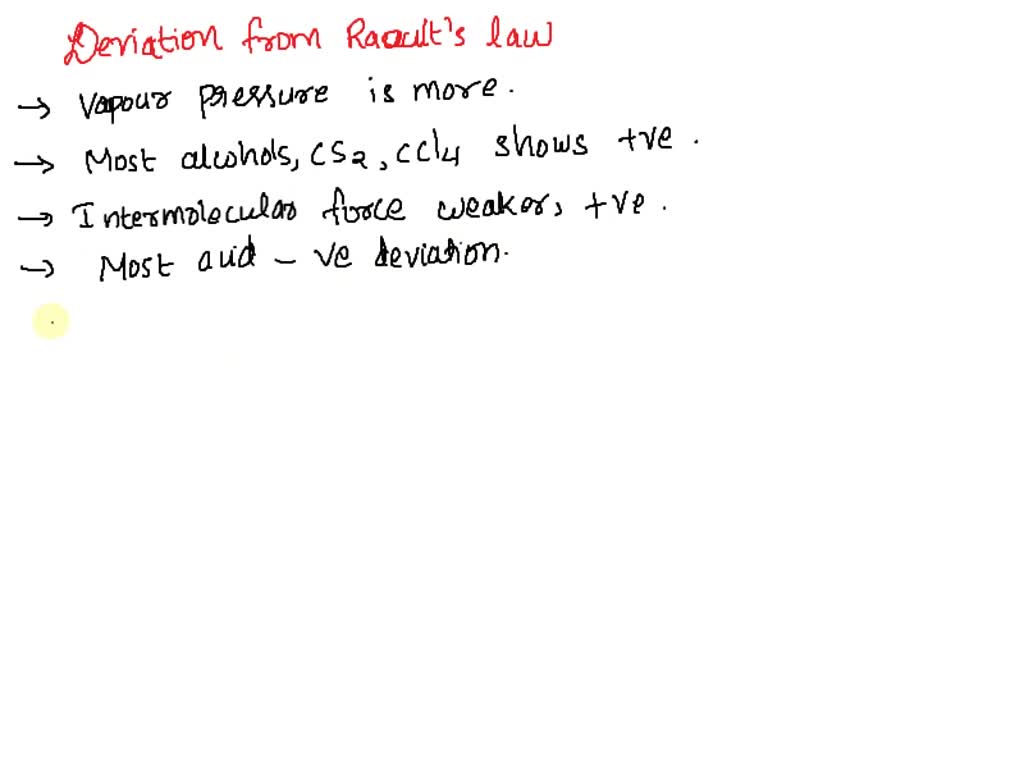 Deviation from Raoult's law
→ Vapour pressure is more.
→ Most alcohols, CS2, CCl4 shows +ve.
→ Intermolecular force weaker, +ve.
→ Most acid -ve deviation.